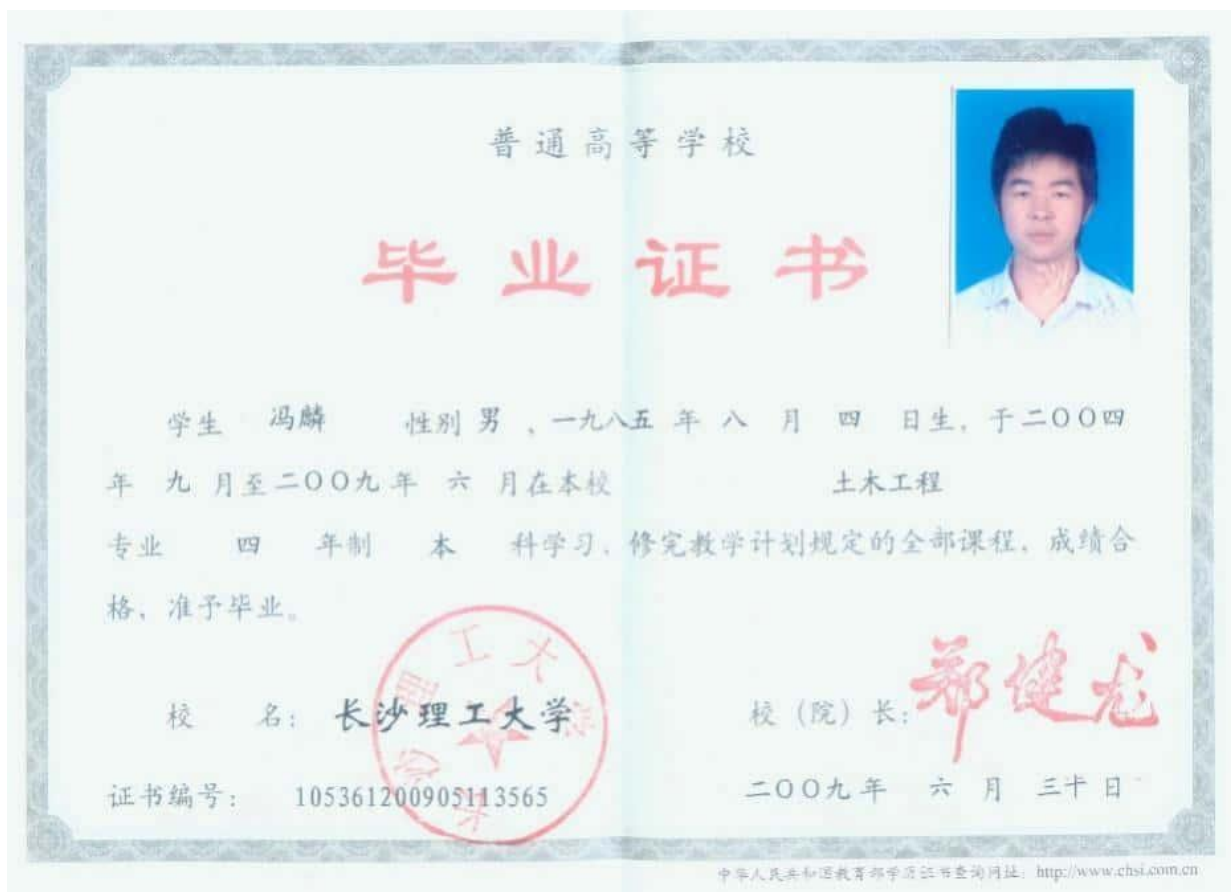 普通高等学校
毕业证书
学生 冯麟 性别 男 、一九八五 年 八 月 四 日生, 于二〇〇四
年 九 月至二〇〇九年 六 月在本校 土木工程
专业 四 年制 本 科学习, 修完教学计划规定的全部课程, 成绩合
格, 准予毕业。
校 名: 长沙理工大学
长沙理工大学
校 (院) 长: 郑健龙
证书编号: 105361200905113565
二〇〇九年 六 月 三十 日
中华人民共和国教育部学历证书查询网址: http://www.chsi.com.cn